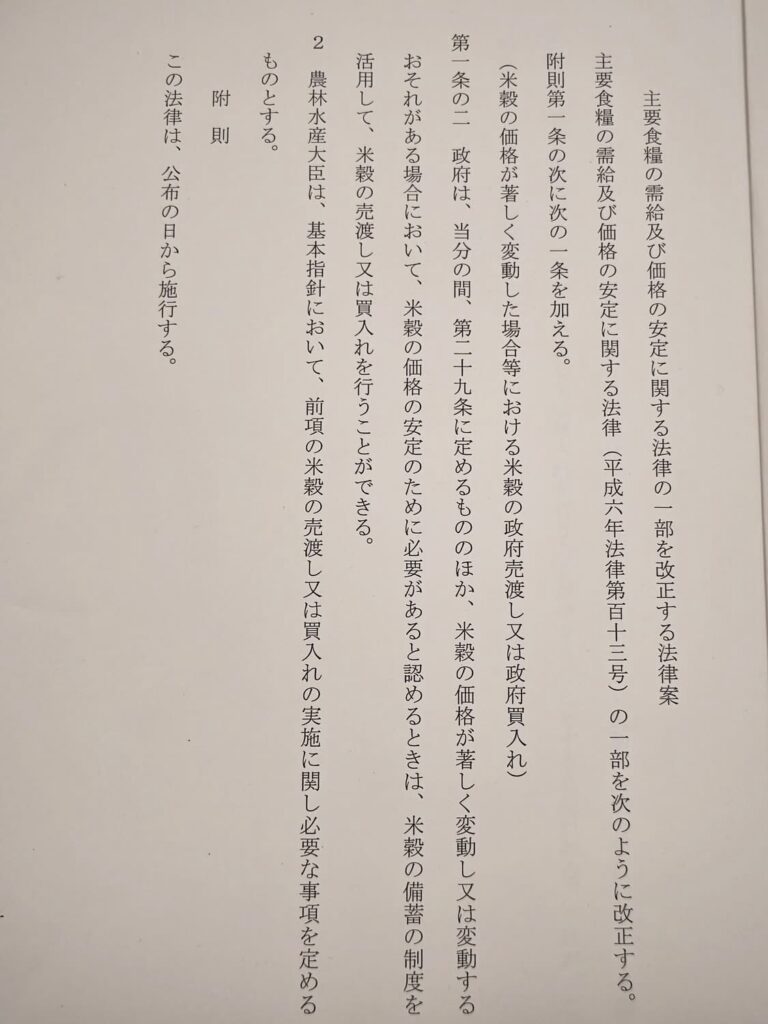 主要食糧の需給及び価格の安定に関する法律の一部を改正する法律案
主要食糧の需給及び価格の安定に関する法律（平成六年法律第百十三号）の一部を次のように改正する。
附則第一条の次に次の一条を加える。
（米穀の価格が著しく変動した場合等における米穀の政府売渡し又は政府買入れ）
第一条の二　政府は、当分の間、第二十九条に定めるもののほか、米穀の価格が著しく変動し又は変動する
おそれがある場合において、米穀の価格の安定のために必要があると認めるときは、米穀の備蓄の制度を
活用して、米穀の売渡し又は買入れを行うことができる。
２　農林水産大臣は、基本指針において、前項の米穀の売渡し又は買入れの実施に関し必要な事項を定める
ものとする。
附　則
この法律は、公布の日から施行する。